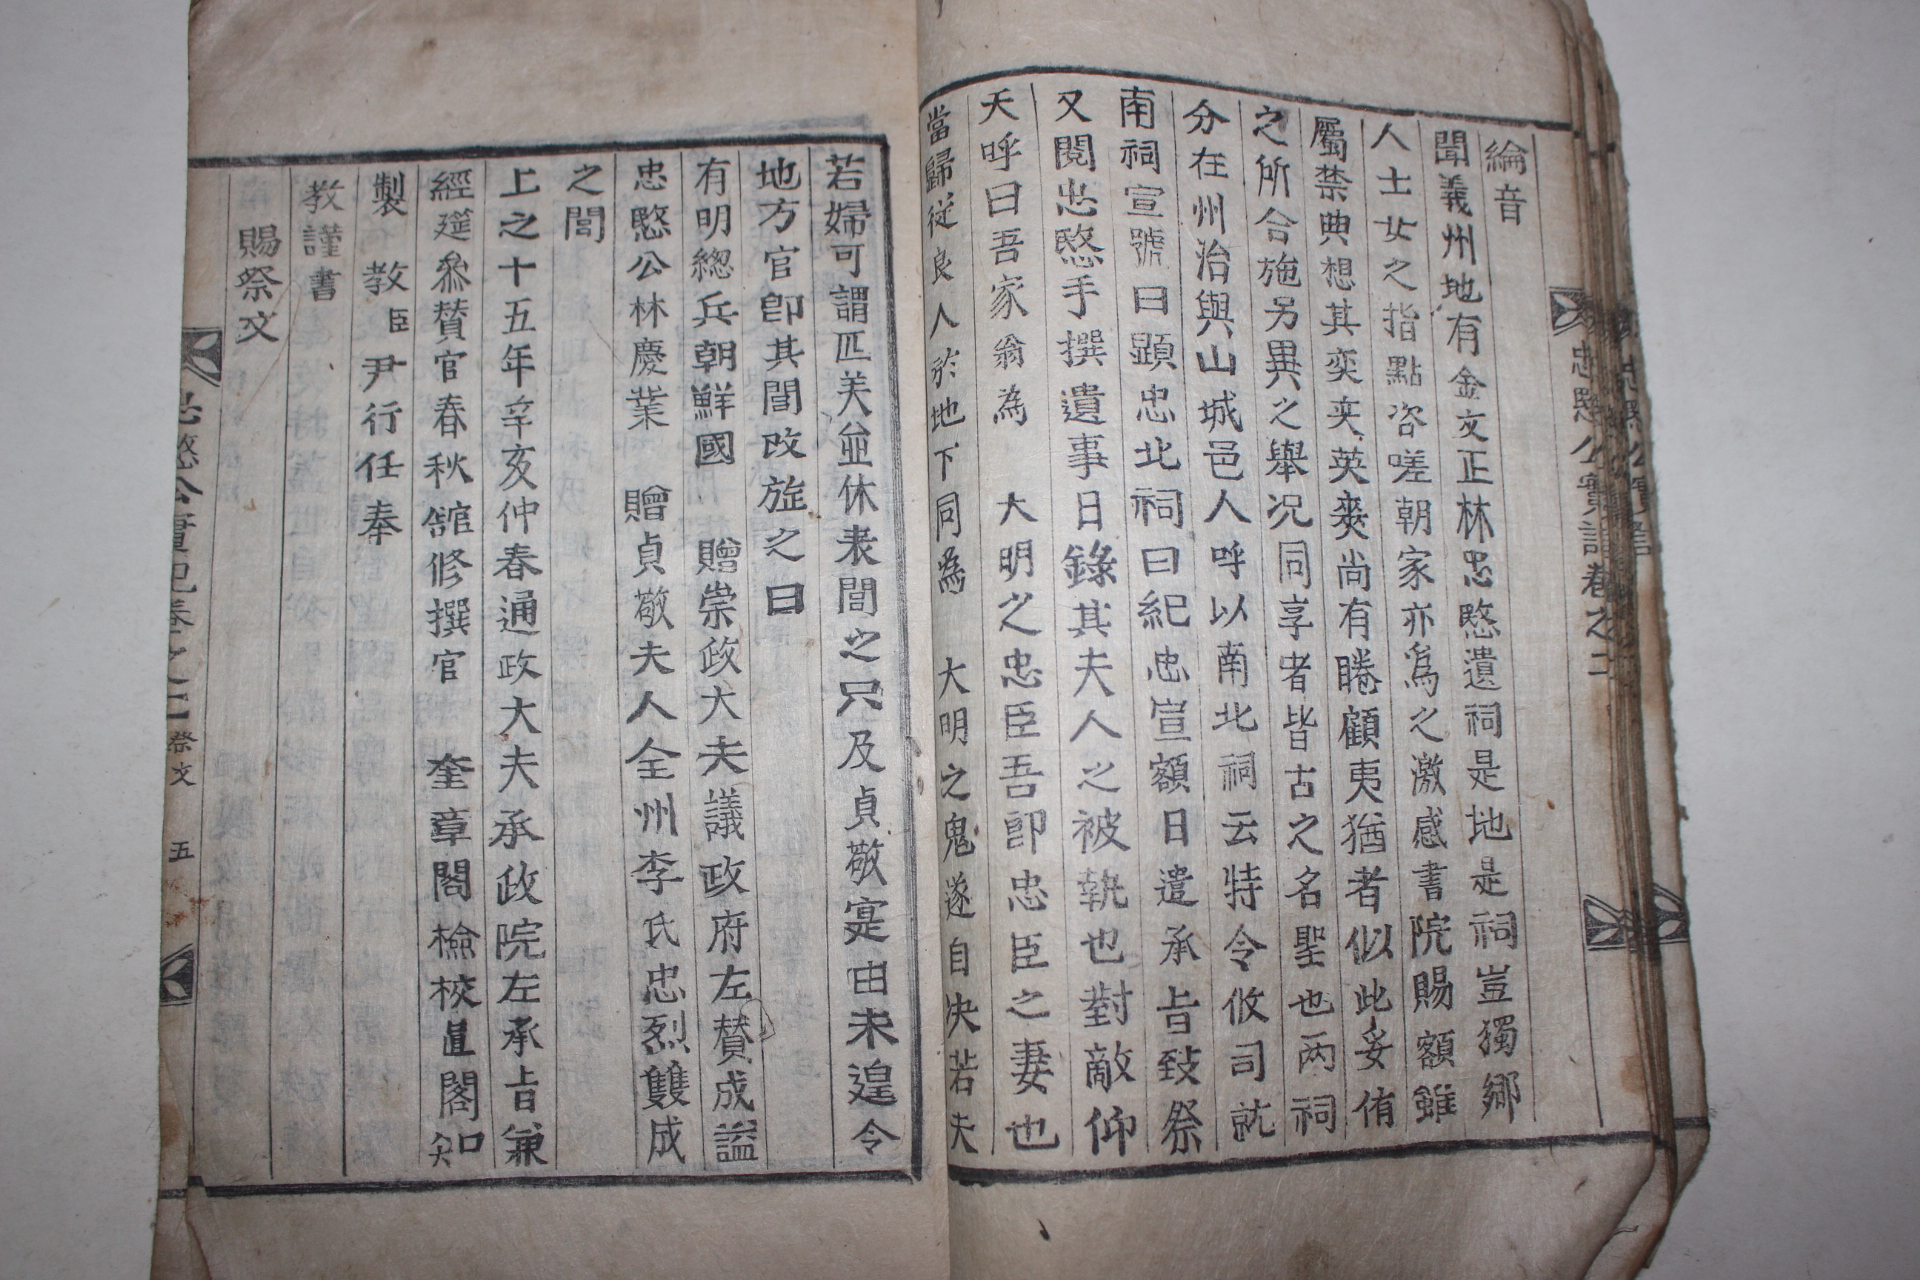 綸音
聞義州地有金文正林忠愍遺祠是地是祠豈獨鄉
人士女之指點咨嗟朝家亦爲之激感書院賜額雖
屬禁典想其奕奕英爽尚有睠顧夷猶者似此妥侑
之所合施另異之舉况同享者皆古之名聖也两祠
分在州治與山城邑人呼以南北祠云特令攸司就
南祠宣號曰顯忠北祠曰紀忠宣額日遣承旨致祭
又閱忠愍手撰遺事日錄其夫人之被執也對敵仰
天呼曰吾家翁為 大明之忠臣吾卽忠臣之妻也
當歸從良人於地下同為 大明之鬼遂自决若夫
若婦可謂匹美並休表閭之只及貞敬寔由未遑令
地方官卽其閭改旌之曰
有明總兵朝鮮國 贈崇政大夫議政府左賛成諡
忠愍公林慶業 贈貞敬夫人全州李氏忠烈雙成
之閭
上之十五年辛亥仲春通政大夫承政院左承旨兼
經筵叅賛官春秋舘修撰官 奎章閣檢校直閣知
製 教臣尹行任奉
教謹書
賜祭文
忠愍公實記卷之二 祭文 五
忠愍公實記卷之二